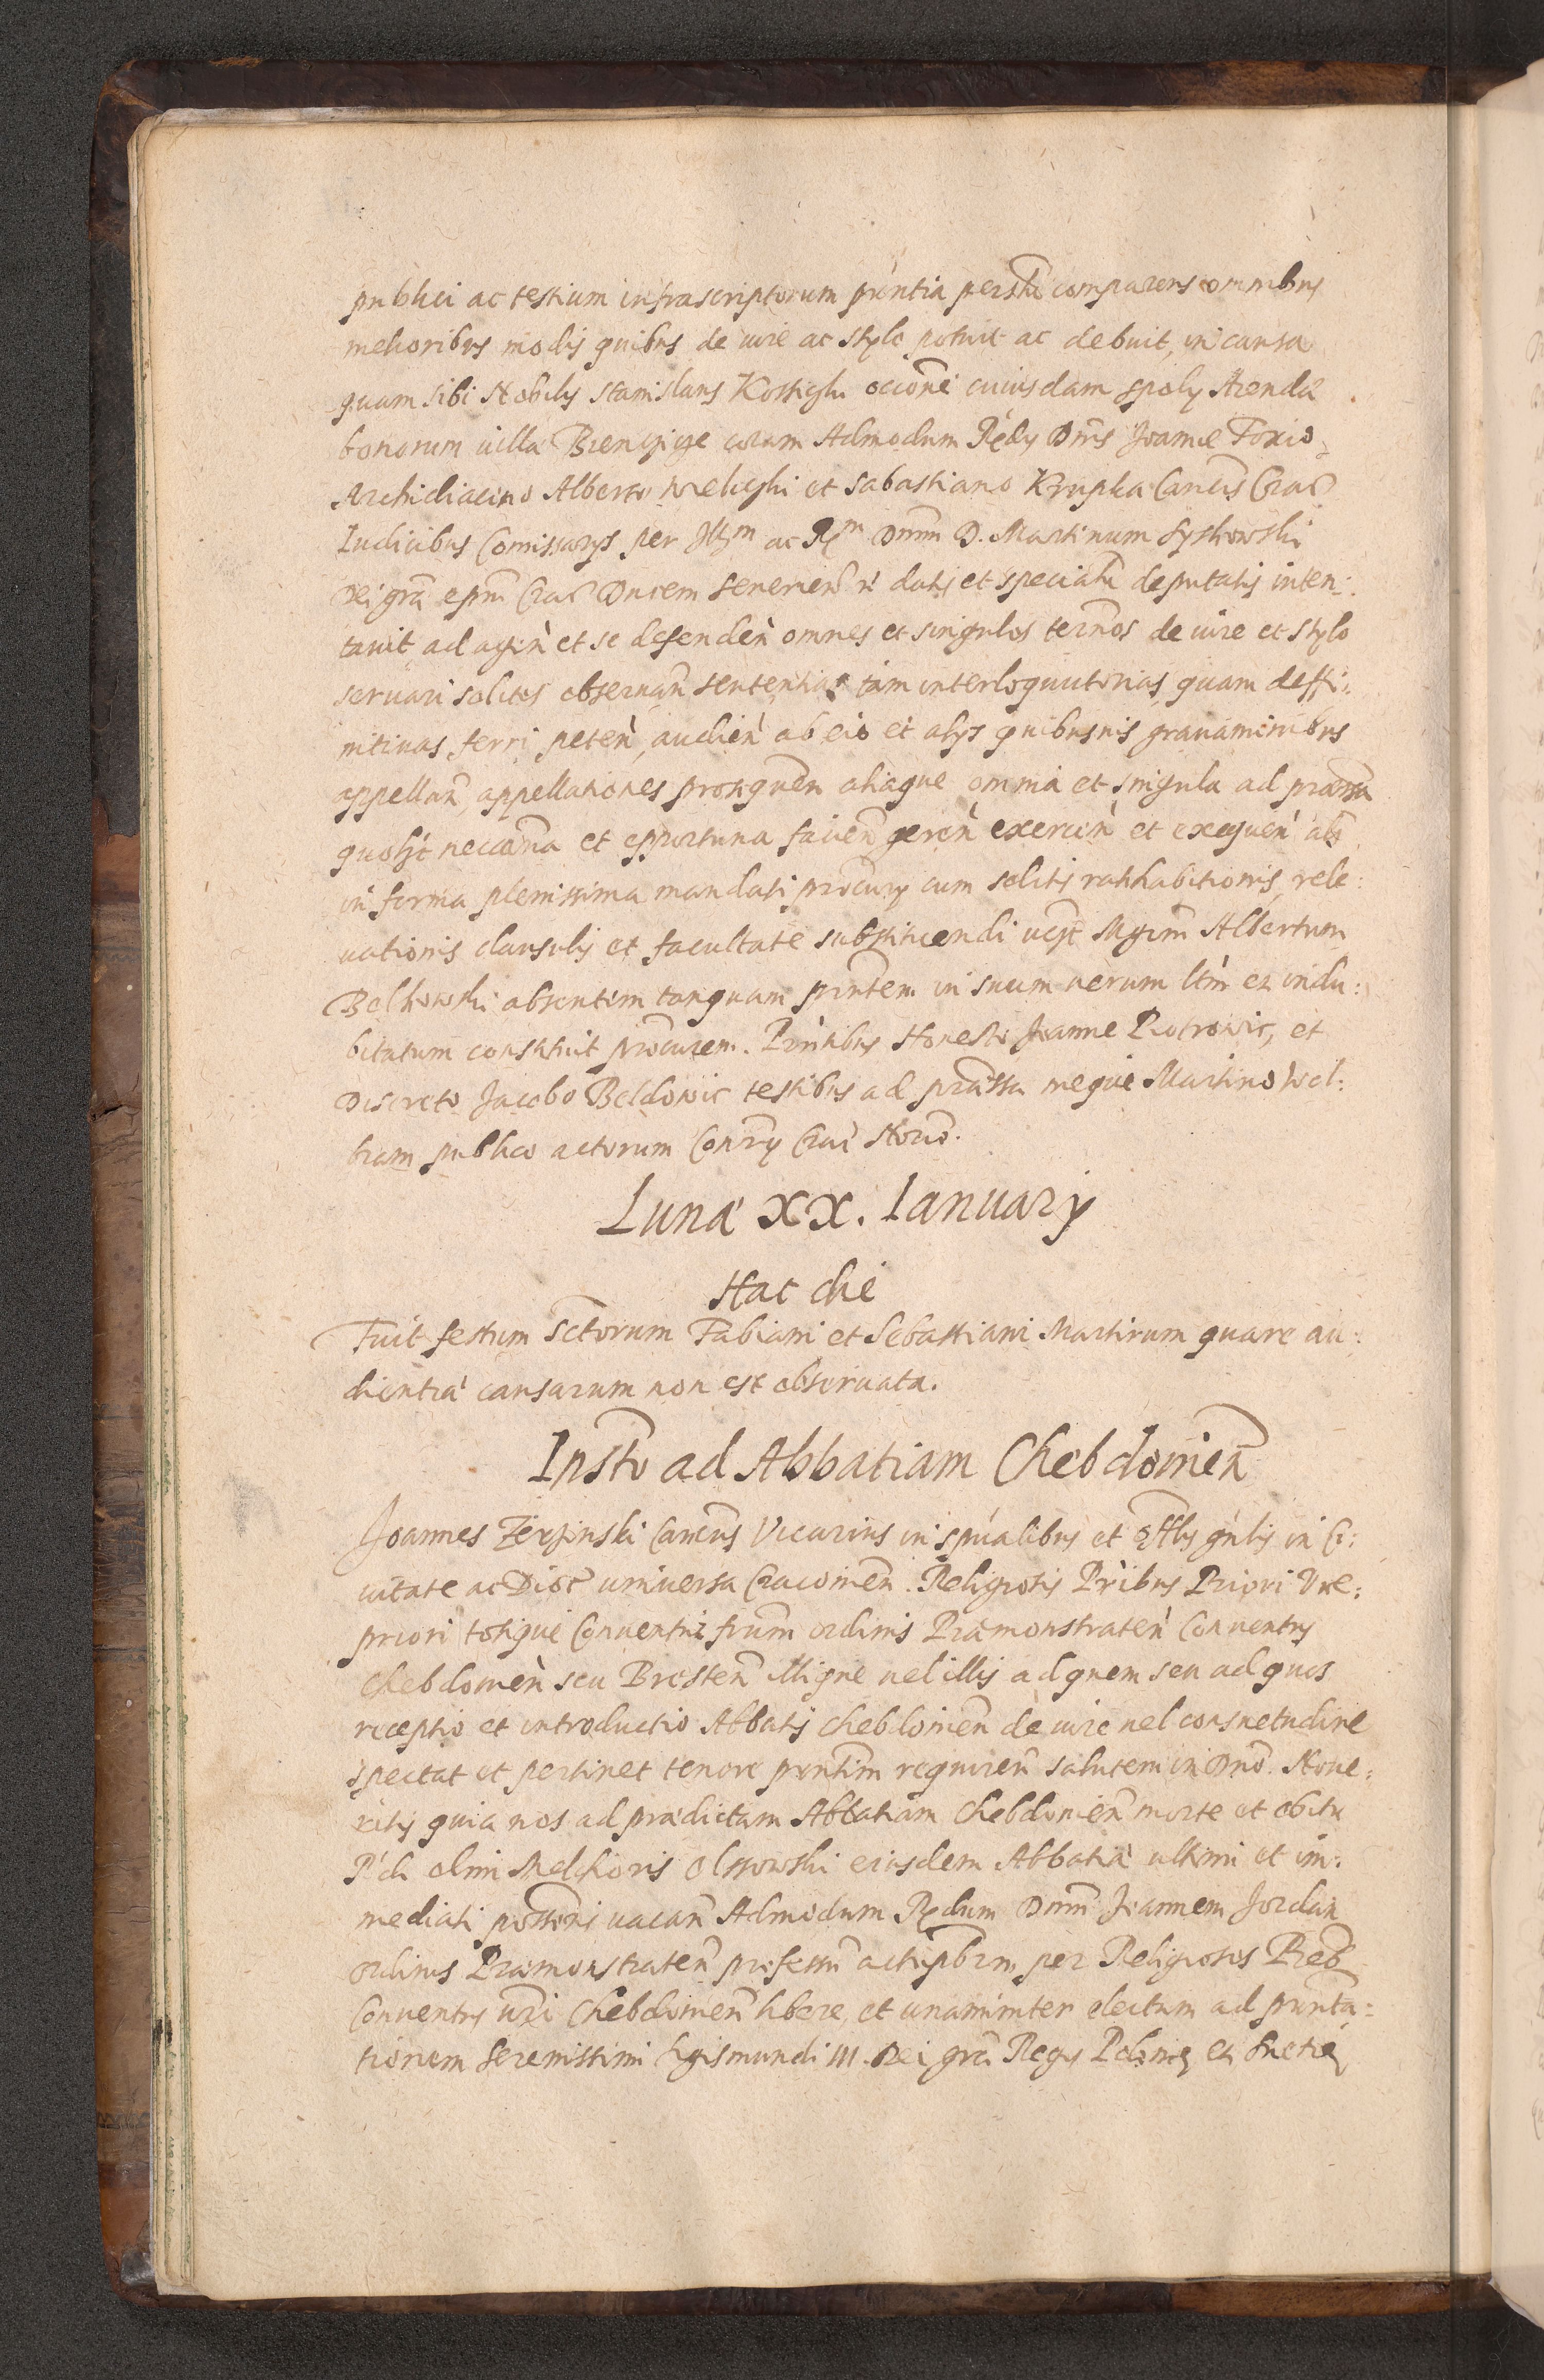 publici ac testium infrascriptorum pñntia persñ comparens omnibus
melioribus modis quibus de iure ac stylo potuit ac debuit, in causa
quam sibi Nobilis Stanislaus occõne cuiusdam spolÿ Arendæ
bonorum villæ coram Admodum Rẽdis Dñis Joanne Foxio
Archidiacono Alberto et Sabastiano Krupka Cancis Crac
Iudicibus Comissarÿs per Illm ac Rm Dnm D. Martinum Syskowski
Dei grã epm Crac Ducem Seuerien datis et specialr deputatis inten:
tauit ad agen et se defenden omnes et singulos termos de iure et stylo
seruari solitos obseruan sententias tam interloquutorias quam deffi:
nitiuas ferri peten, audien ab eis et alÿs quibusuis grauaminibus
appellan, appellationes prosquen aliaque omnia et singula ad præmssa
quolt neccria et opportuna facien geren exercen et exequen als
in forma plenissima mandati procurÿ cum solitis ratihabitionis, rele:
uationis clausulis et facultate substituendi Mgrm Albertum
Belkowski absentem tanquam pñntem in suum uerum ltm et indu:
bitatum constituit procurem. Pñntibus Honesto Joanne Piotrowic, et
Discreto Jacobo Beldowic testibus ad præmssa meque Martino Wel:
publico actorum Conrÿ Crac Norio.
Lunæ XX. Ianuarÿ
Hac die
Fuit festum Sctorum Fabiani et Sebastiani Martirum quare au:
dientia causarum non est obseruata.
Instõ ad Abbatiam Chebdouien
Joannes Cancus Vicarius in spualibus et gnlis in Ci:
uitate ac Dioc uniuersa Cracouien. Religiosis Pribus Priori Vice:
priori totique Conuentui frum ordinis Præmonstraten Conuentus
Chebdouien seu Bresten illique uel illis ad quem seu ad quos
receptio et introductio Abbatis Chebdouien de iure uel consuetudine
spectat et pertinet tenore pñntim requiren salutem in Dno. Noue:
ritis quia nos ad prædictam Abbatiam Chebdouien morte et obitu
olim Melchioris Olssowski eiusdem Abbatiæ ultimi et im:
mediati possoris uacan Admodum Rdum Dnm Joannem Jordan
ordinis Præmonstraten professm per Religiosos
Conuentus uri Chebdouien libere, et unanimiter electum ad pñnta:
tionem Serenissimi Sigismundi III. Dei grã Regis Poloniæ et Suetiæ